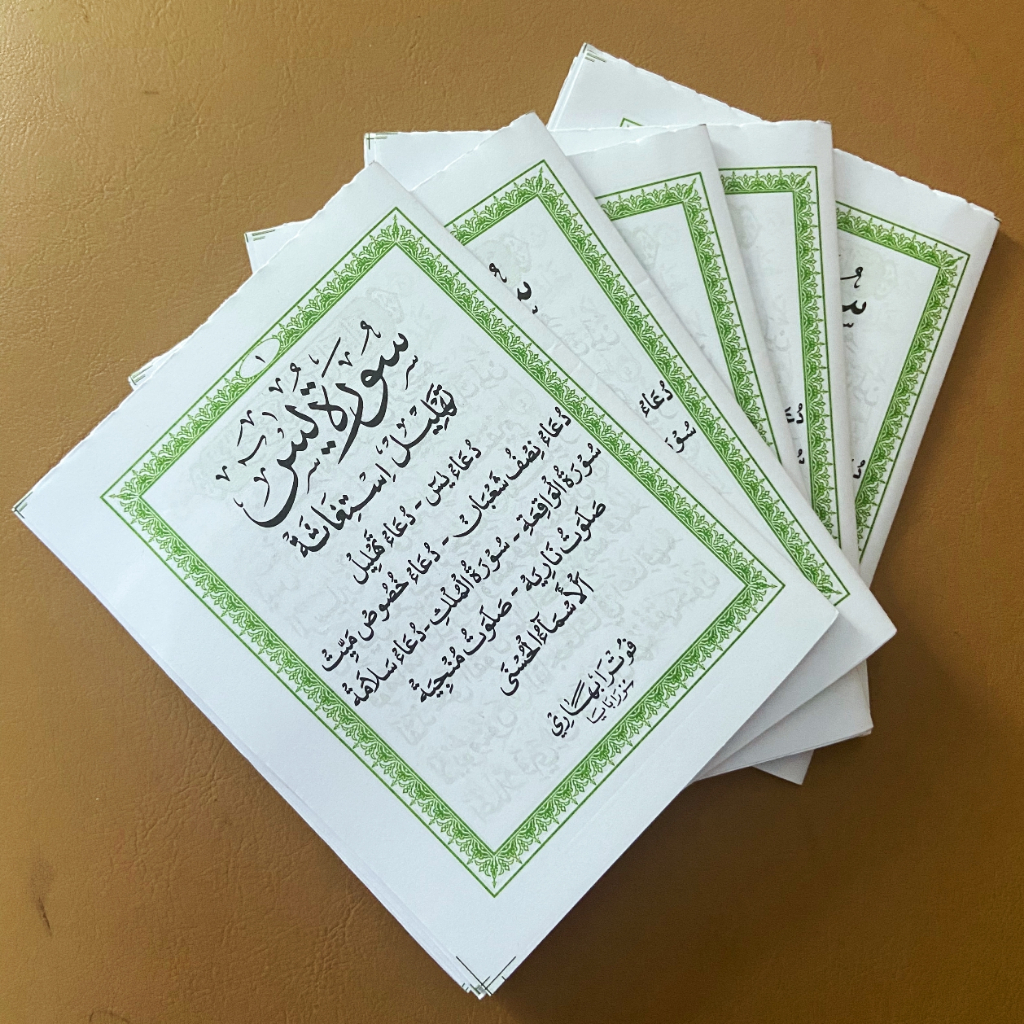 ١
سُورَة يٰسٓ
تَهْلِيْل اِسْتِغَاثَة
دُعَاءْ يٰسٓ - دُعَاءْ تَهْلِيْل
دُعَاءْ نِصْفُ شَعْبَانْ - دُعَاءْ خُصُوصْ مَيِّتْ
سُوْرَةُ الْوَاقِعَةِ - سُوْرَةُ الْمُلْكِ - دُعَاءْ سَلَامَةْ
صَلَوٰتْ نَارِيَةْ - صَلَوَتْ مُنْجِيَةْ
اَلْأَسْمَآءُ الْحُسْنَى
فُوْتَرَا بْهَارِيْ
سُوْرَابَايَا
دُعَاءْ